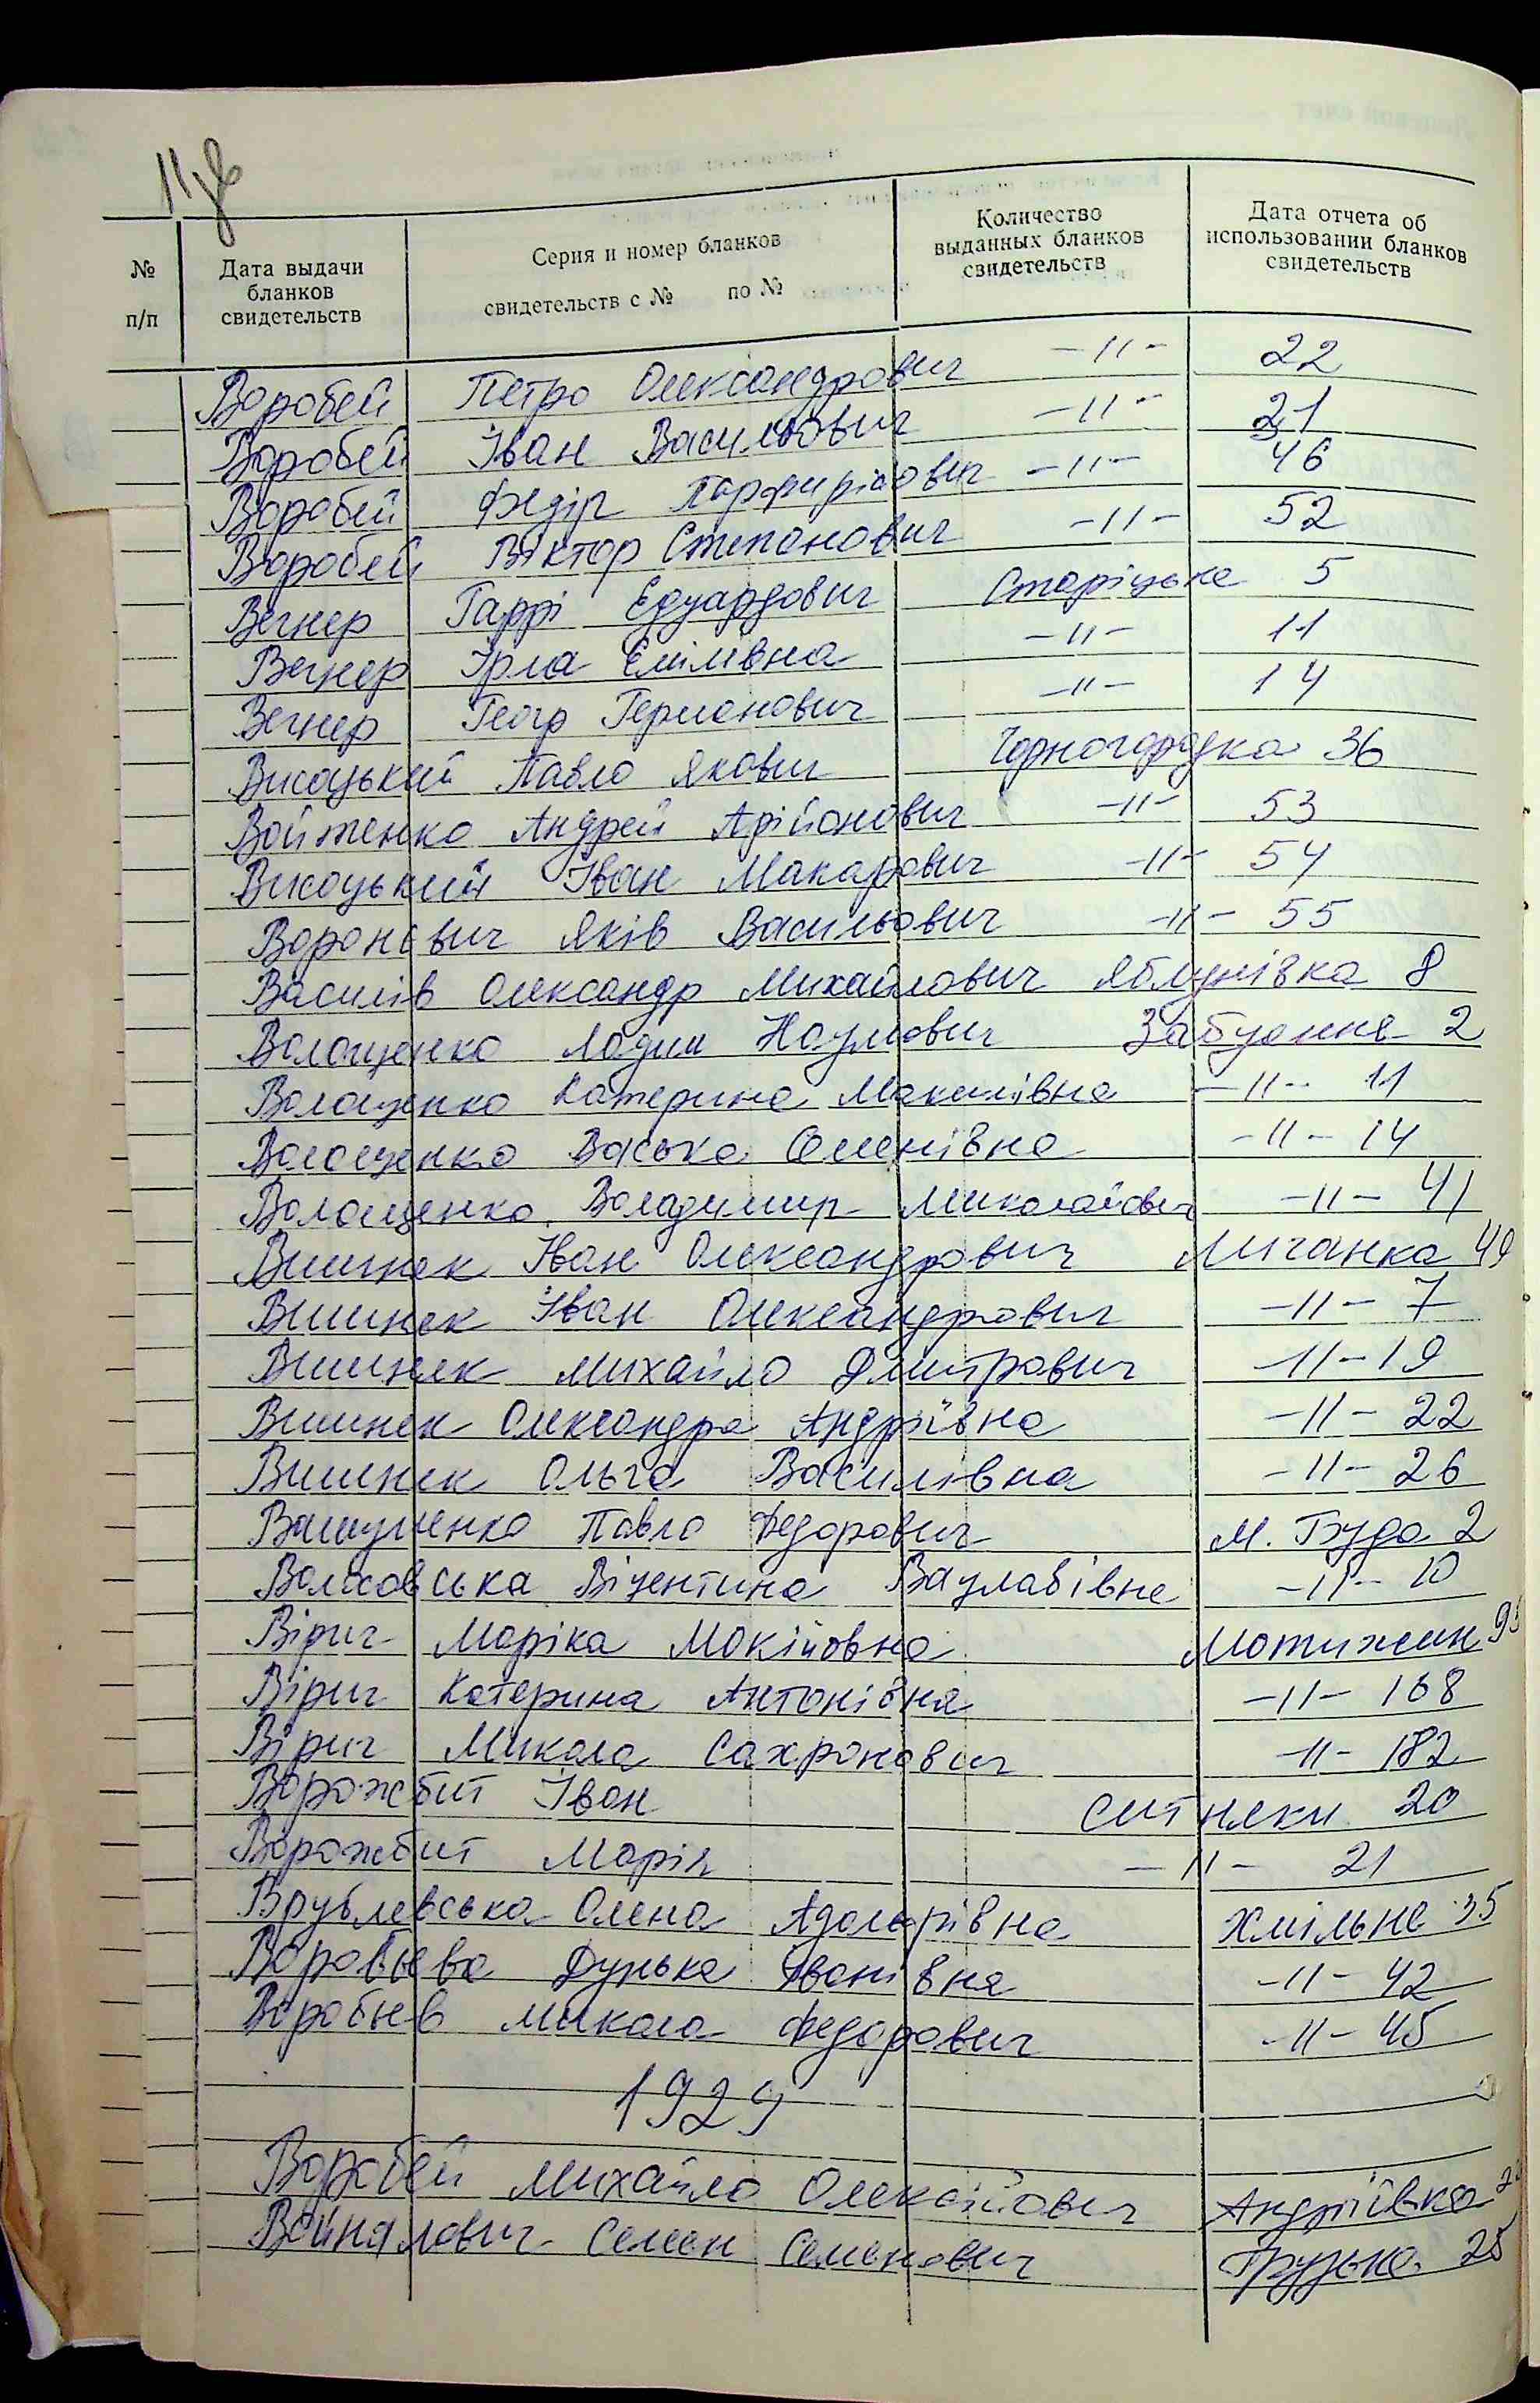 11 зв
№ п/п
Дата выдачи бланков свидетельств
Серия и номер бланков свидетельств с № по №
Количество выданных бланков свидетельств
Дата отчета об использовании бланков свидетельств
Воробей Петро Олександрович -"- 22
Воробей Іван Васильович -"- 21
Воробей Федір Парфирійович -"- 46
Воробей Віктор Степанович -"- 52
Вегнер Гаррі Едуардович Старіцька 5
Вегнер Ірма Емілівна -"- 11
Вегнер Георг Германович -"- 14
Висоцький Павло Якович Чорногородка 36
Войтенко Андрей Арійонович -"- 53
Висоцький Іван Макарович -"- 54
Воронович Яків Васильович -"- 55
Василів Олександр Михайлович Яблунівка 8
Волощенко Лодим Наумович Забуянне 2
Волощенко Катерина Максимівна -"- 11
Волощенко Васька Оленівна -"- 14
Волощенко Володимир Миколайович -"- 41
Вишняк Іван Олександрович Личанка 49
Вишняк Іван Олександрович -"- 7
Вишняк Михайло Дмитрович -"- 19
Вишняк Олександра Андріївна -"- 22
Вишняк Ольга Василівна -"- 26
Павло Федорович М. Буда 2
Волковська Віцентина Вацлавівна -"- 10
Вірич Маріка Мокійовна Мотижин
Вірич Катерина Антонівна -"- 168
Вірич Микола Сахронович -"- 182
Ворожбит Іван Ситняки 20
Ворожбит Марія -"- 21
Врублевська Олена Адольфівна Хмільна 35
Воробьева Дунька Іванівна -"- 42
Воробьев Микола Федорович -"- 45
1929
Воробей Михайло Олексійович Андріївка
Войналович Семен Семенович Грузька 25